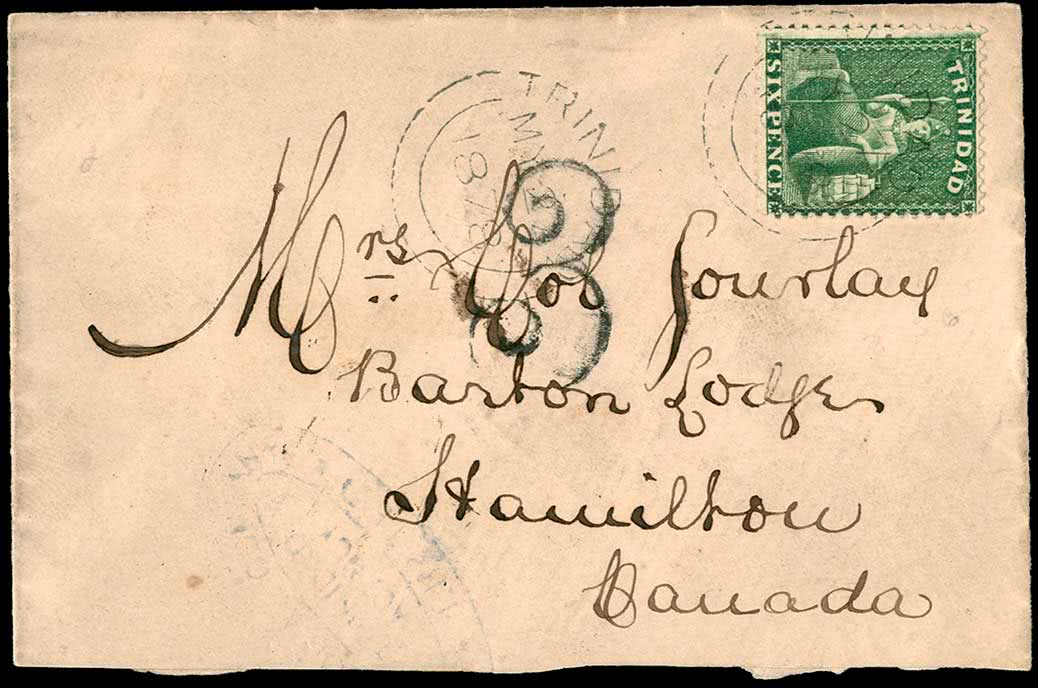 TRINIDAD
SIX PENCE
TRINIDAD
MY
1878
3
Mrs Gourlay
Barton Lodge
Hamilton
Canada